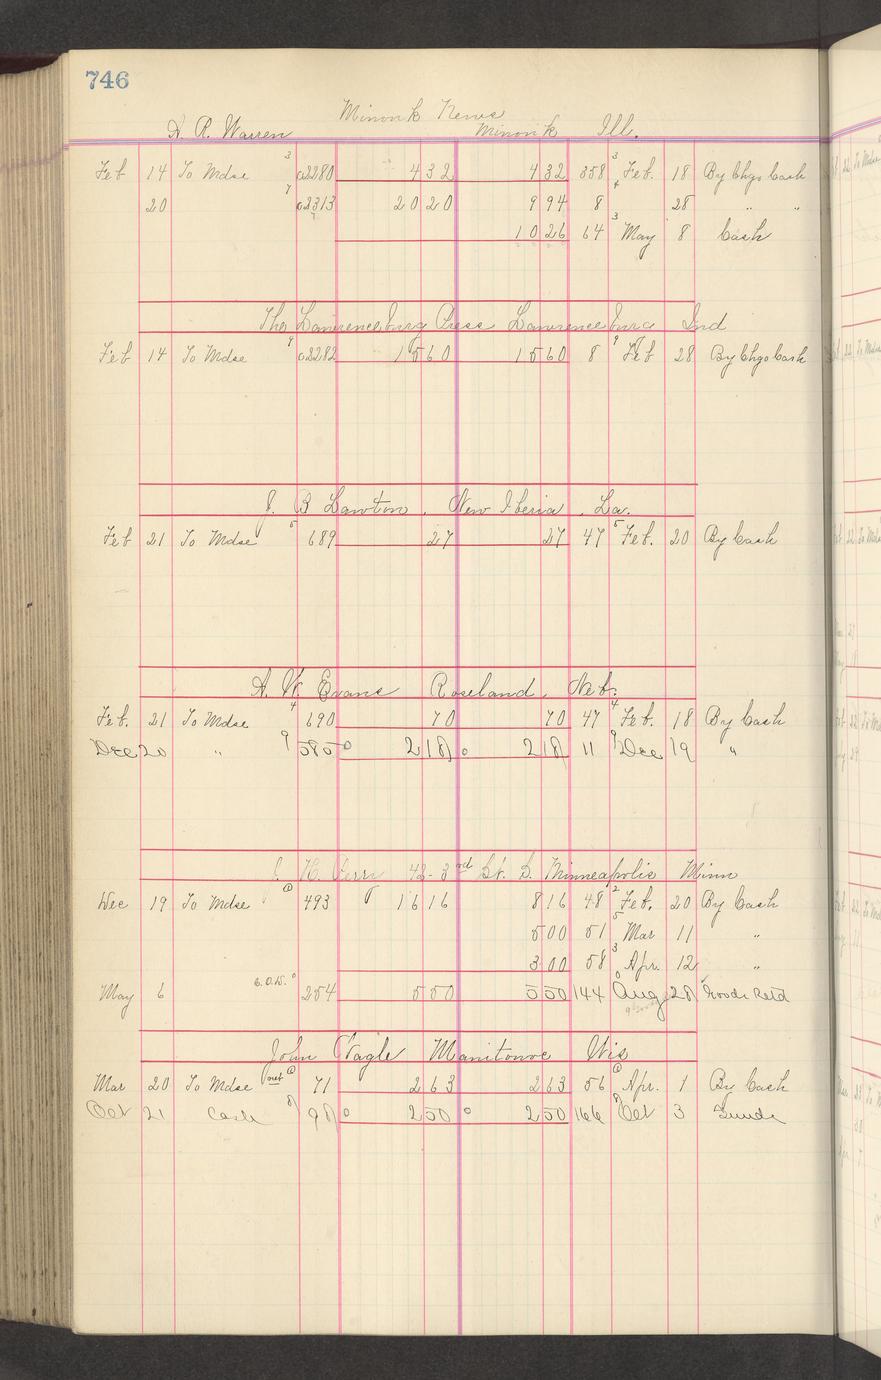 746
Minonk News
A. R. Warren Minonk Ill.
Feb 14 To Mdse 3 a2280 4 32 4 32 358 3 Feb. 18 By Chgo Cash
20 7 a2313 20 20 9 94 8 4 28 " "
10 26 64 3 May 8 Cash
The Lawrenceburg Press Lawrenceburg Ind
Feb 14 To Mdse 9 a2282 15 60 15 60 8 9 Feb 28 By Chgo Cash
J. B Lawton, New Iberia, La.
Feb 21 To Mdse 5 689 27 27 47 5 Feb. 20 By Cash
A. W. Evans Roseland, Neb.
Feb. 21 To Mdse 4 690 70 70 47 4 Feb. 18 By Cash
Dec 20 " 9 585 0 2 18 0 2 18 11 9 Dec 19 "
J. H. 43-3rd St. S. Minneapolis Minn
Dec 19 To Mdse 493 16 16 8 16 48 2 Feb. 20 By Cash
5 00 51 5 Mar 11 "
3 00 58 3 Apr. 12 "
May 6 254 5 50 5 50 144 Aug 28 Goods Retd
John Nagle Manitowoc Wis
Mar 20 To Mdse 71 2 63 2 63 56 Apr. 1 By Cash
Oct 21 Cash 8 98 0 2 50 0 2 50 166 8 Oct 3